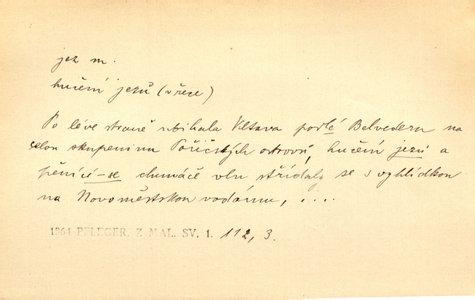 jez m.
hučení jezů (v řece)
Po levé straně ubíhala Vltava podlé Belvederu na
celou skupeninu Poříčských ostrovů, hučení jezů a
pěnící-se chumáče vln střídaly se s vyhlídkou
na Novoměstskou vodárnu, . . .
1864 PFLEGER, Z MAL. SV. 1. 112, 3.